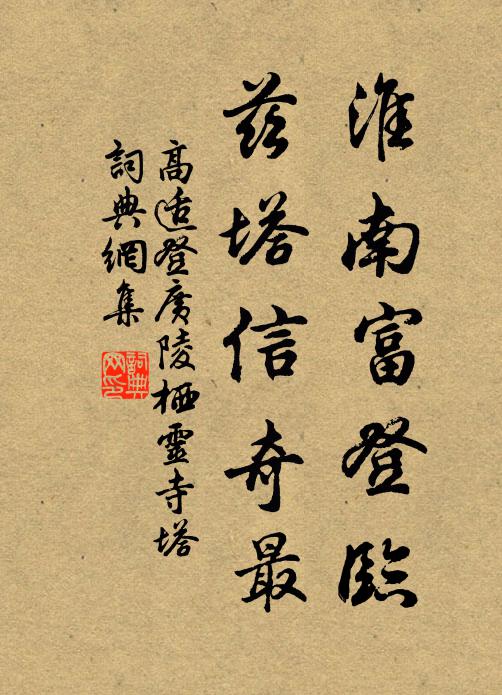 淮南富登臨
茲塔信奇最
高适登廣陵栖靈寺塔
詞典網集
詞典
网印